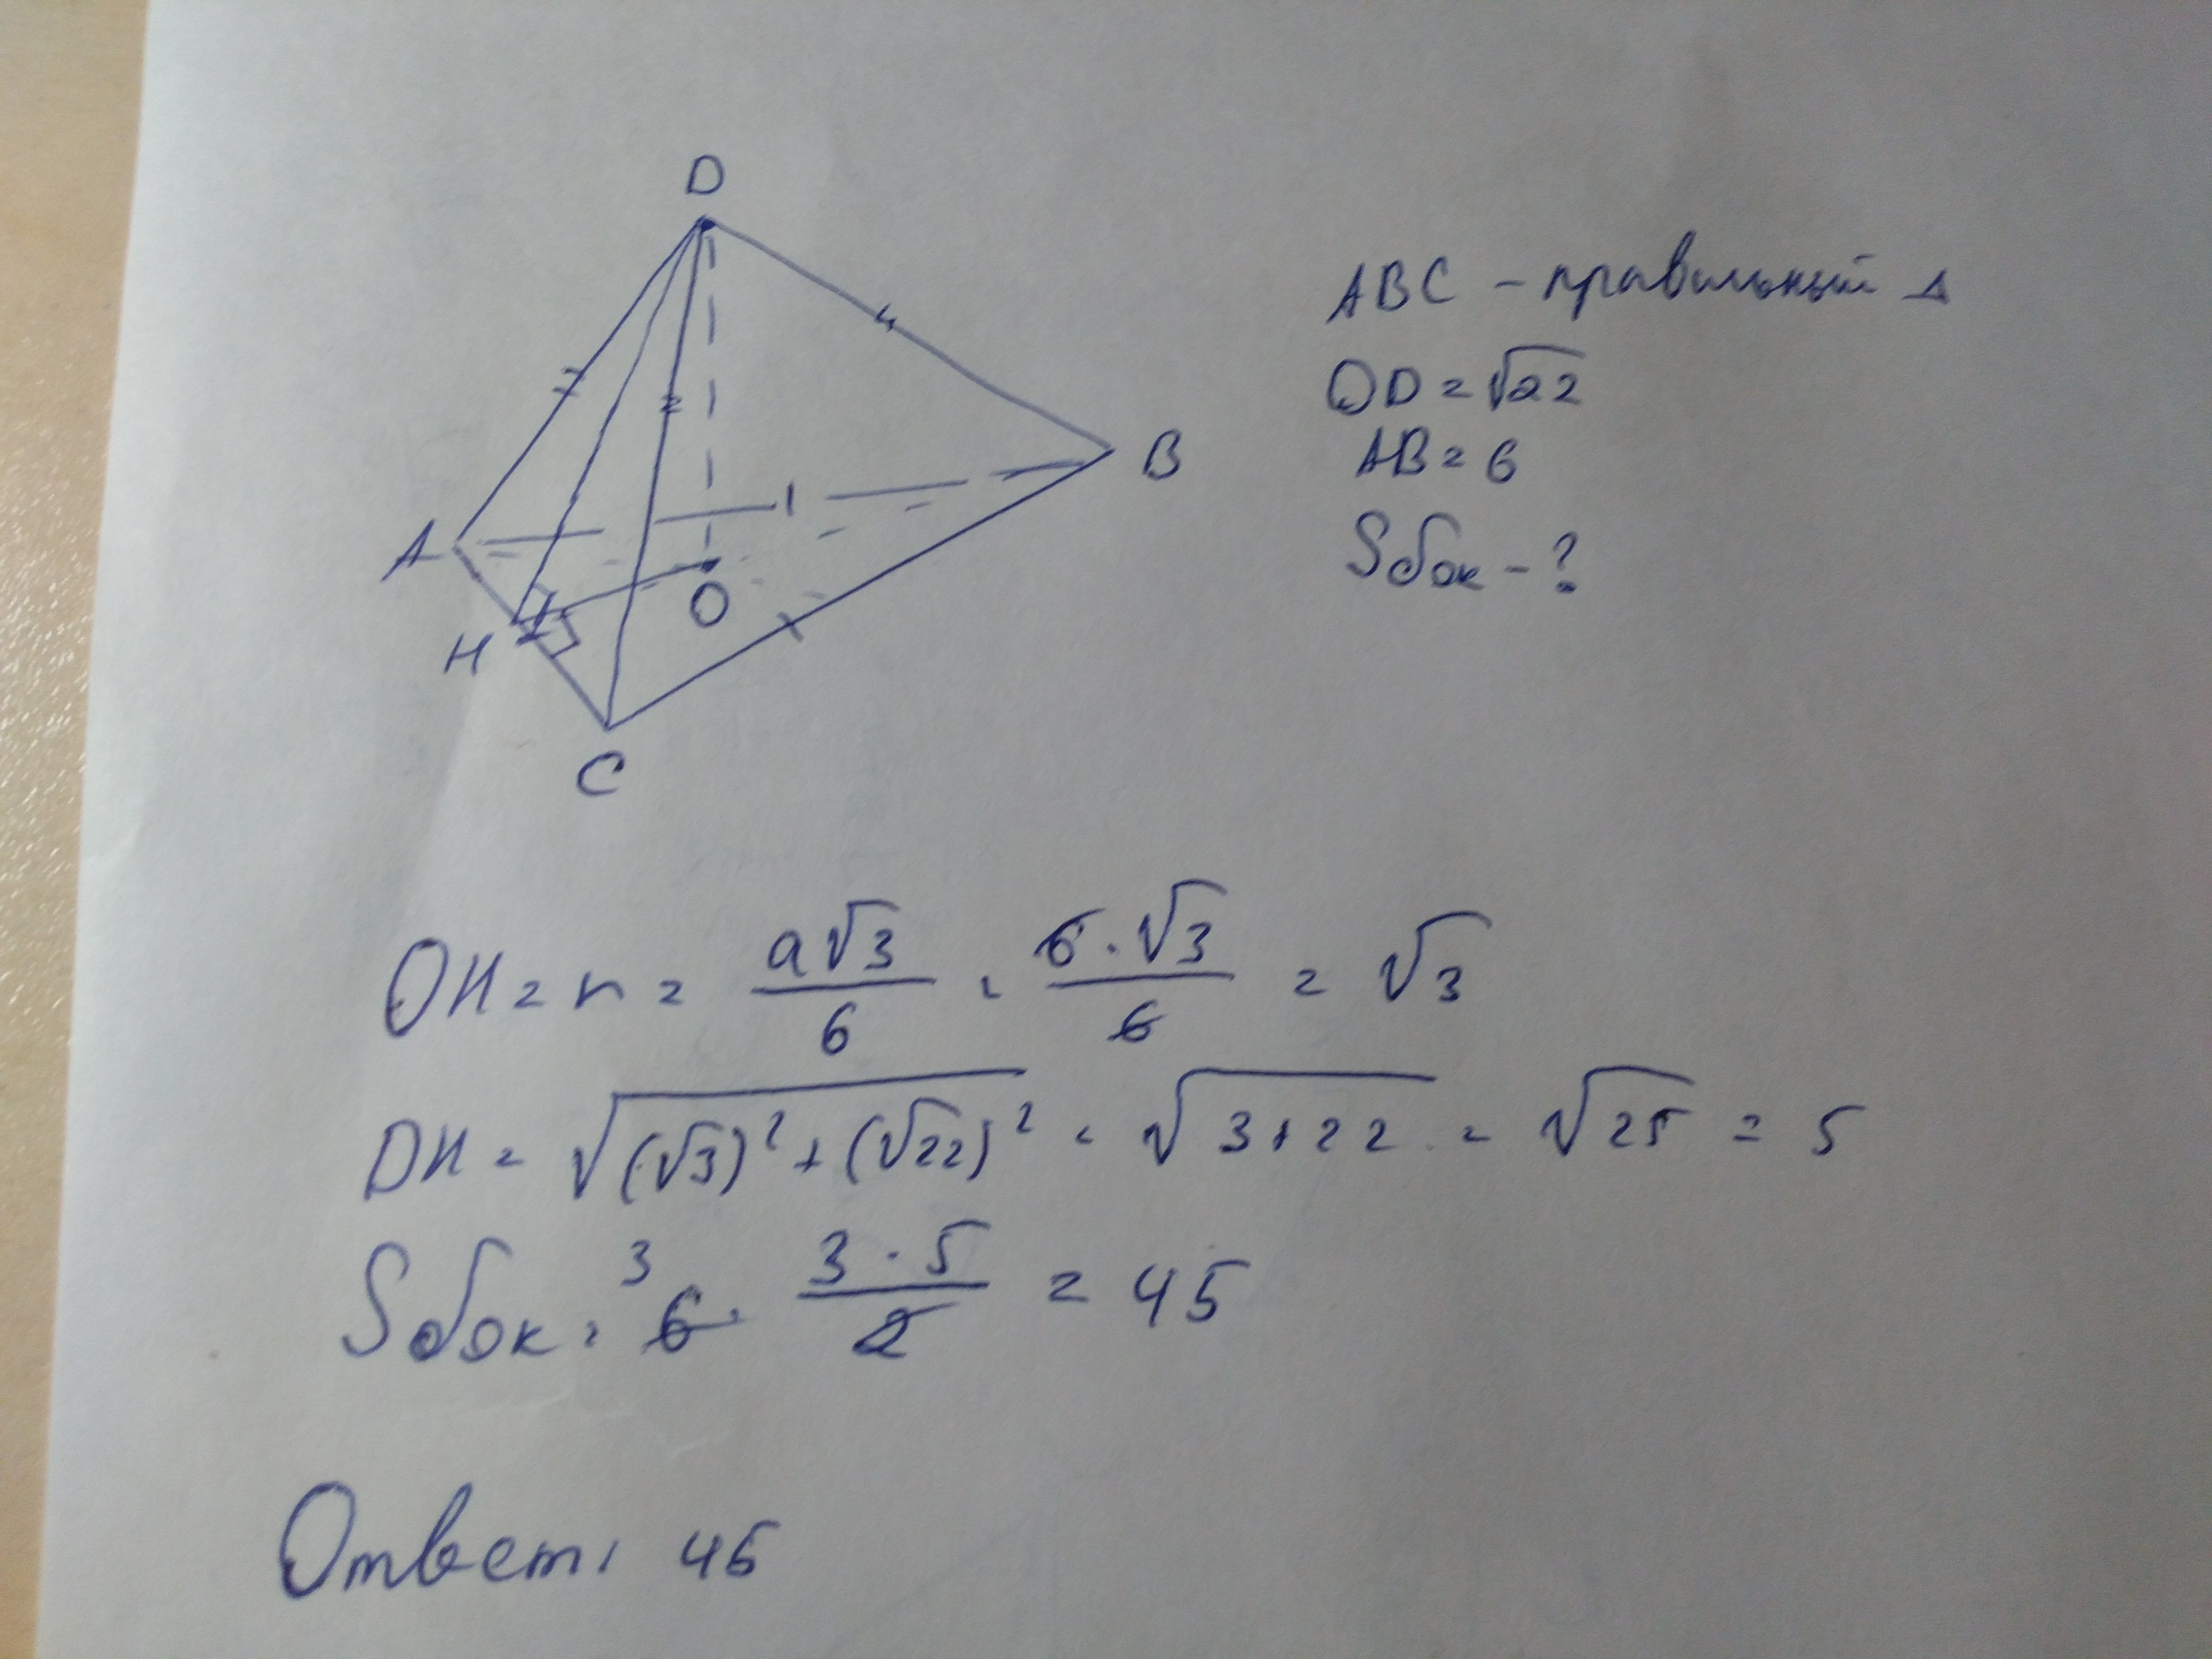 D
ABC - правильный Δ
OD = √22
AB = 6
B
Sбок - ?
A
O
H
C
OH = r = a√3/6 = 6·√3/6 = √3
DH = √((√3)² + (√22)²) = √(3+22) = √25 = 5
3
Sбок = 6 · 3·5/2 = 45
Ответ: 45